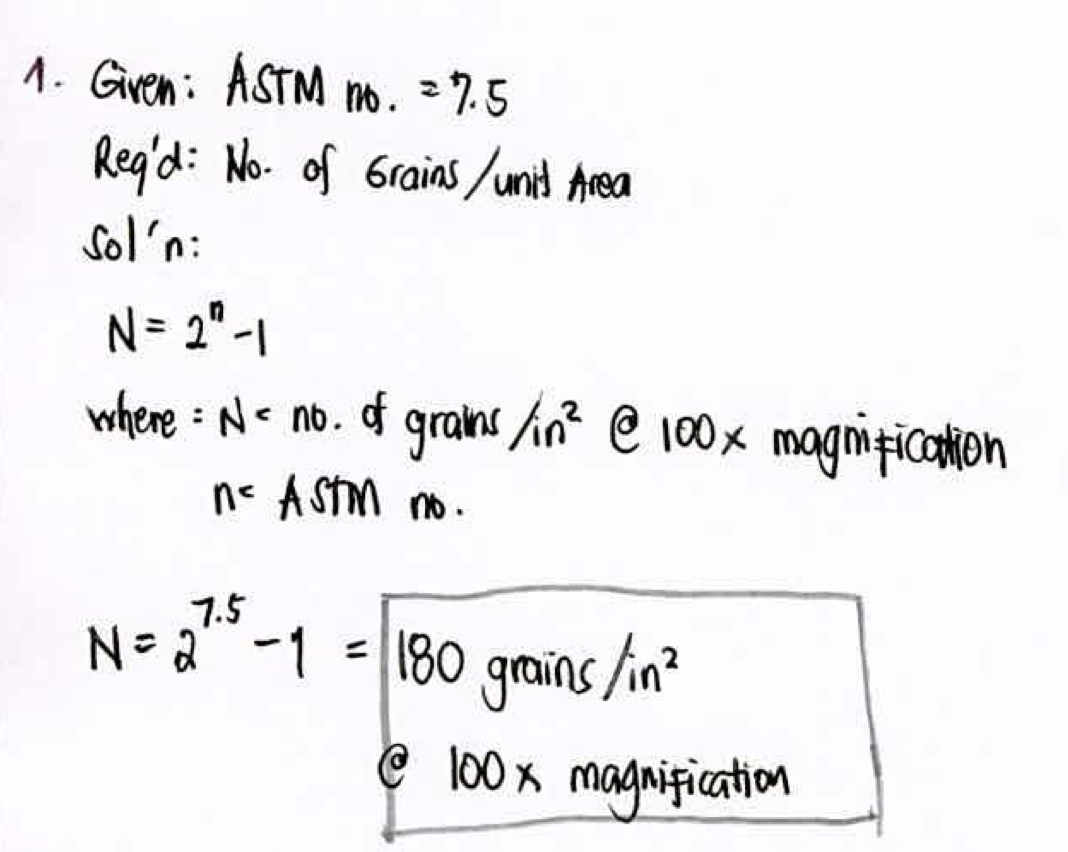 1. Given: ASTM no. = 7.5
Req'd: No. of Grains/unit Area
Sol'n:
N = 2ⁿ - 1
where: N = no. of grains/in² @ 100x magnification
n = ASTM no.
N = 2^7.5 - 1 = 180 grains/in²
@ 100x magnification